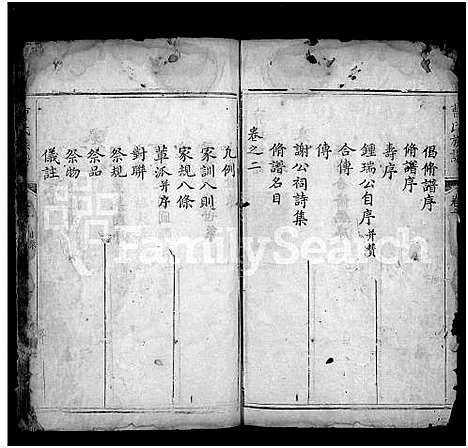 倡脩譜序
脩譜序
壽序
鍾瑞公自序并贊
合傳
傳
謝公祠詩集
脩譜名目
卷之二
凡例
家訓八則
家規八條
輩派并序
對聯
祭規
祭品
祭物
儀註
FamilySearch